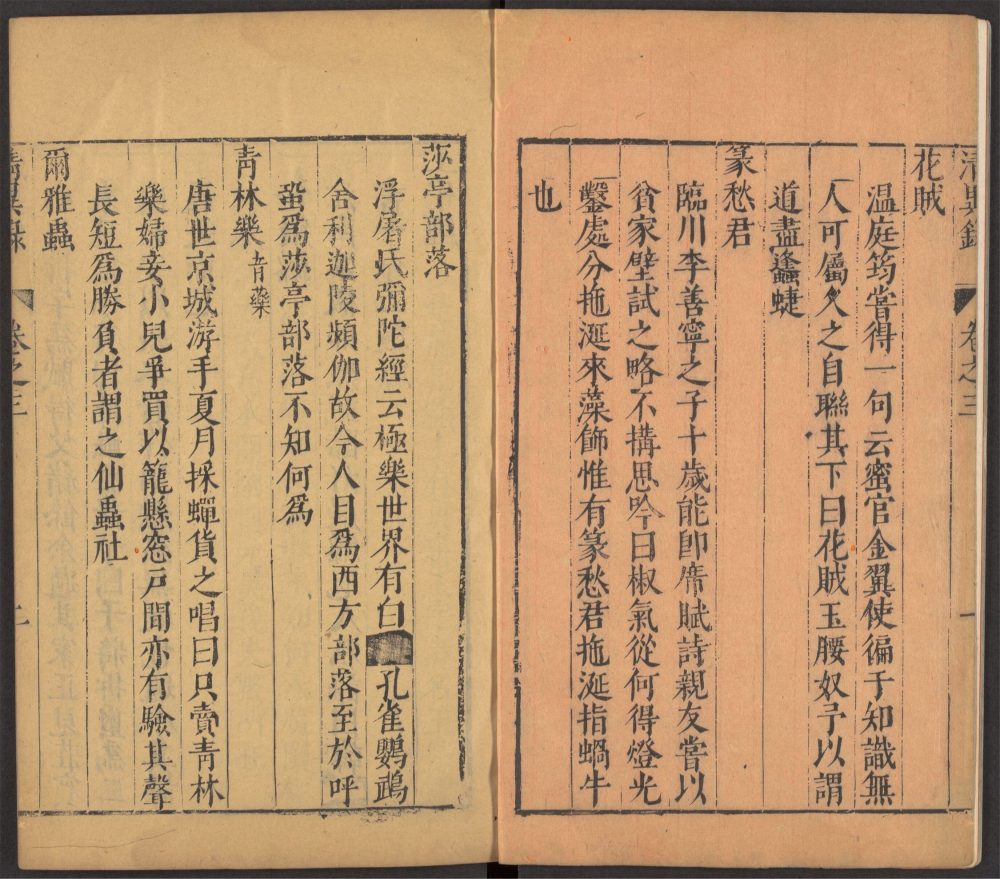 清異錄 卷之三 一
花賊
温庭筠嘗得一句云蜜官金翼使徧于知識無
人可屬久之自聯其下曰花賊玉腰奴予以謂
道盡蠭蜨
篆愁君
臨川李善寧之子十歲能卽席賦詩親友嘗以
貧家壁試之略不搆思吟曰椒氣從何得燈光
鑿處分拖涎來藻飾惟有篆愁君拖涎指蝸牛
也
莎亭部落
浮屠氏彌陀經云極樂世界有白孔雀鸚鵡
舍利迦陵頻伽故令人目爲西方部落至於呼
蛩爲莎亭部落不知何爲
青林樂 青藥
唐世京城游手夏月採蟬貨之唱曰只賣青林
樂婦妾小兒爭買以籠懸窓戶間亦有驗其聲
長短爲勝負者謂之仙蟲社
爾雅蟲
清異錄 卷之三